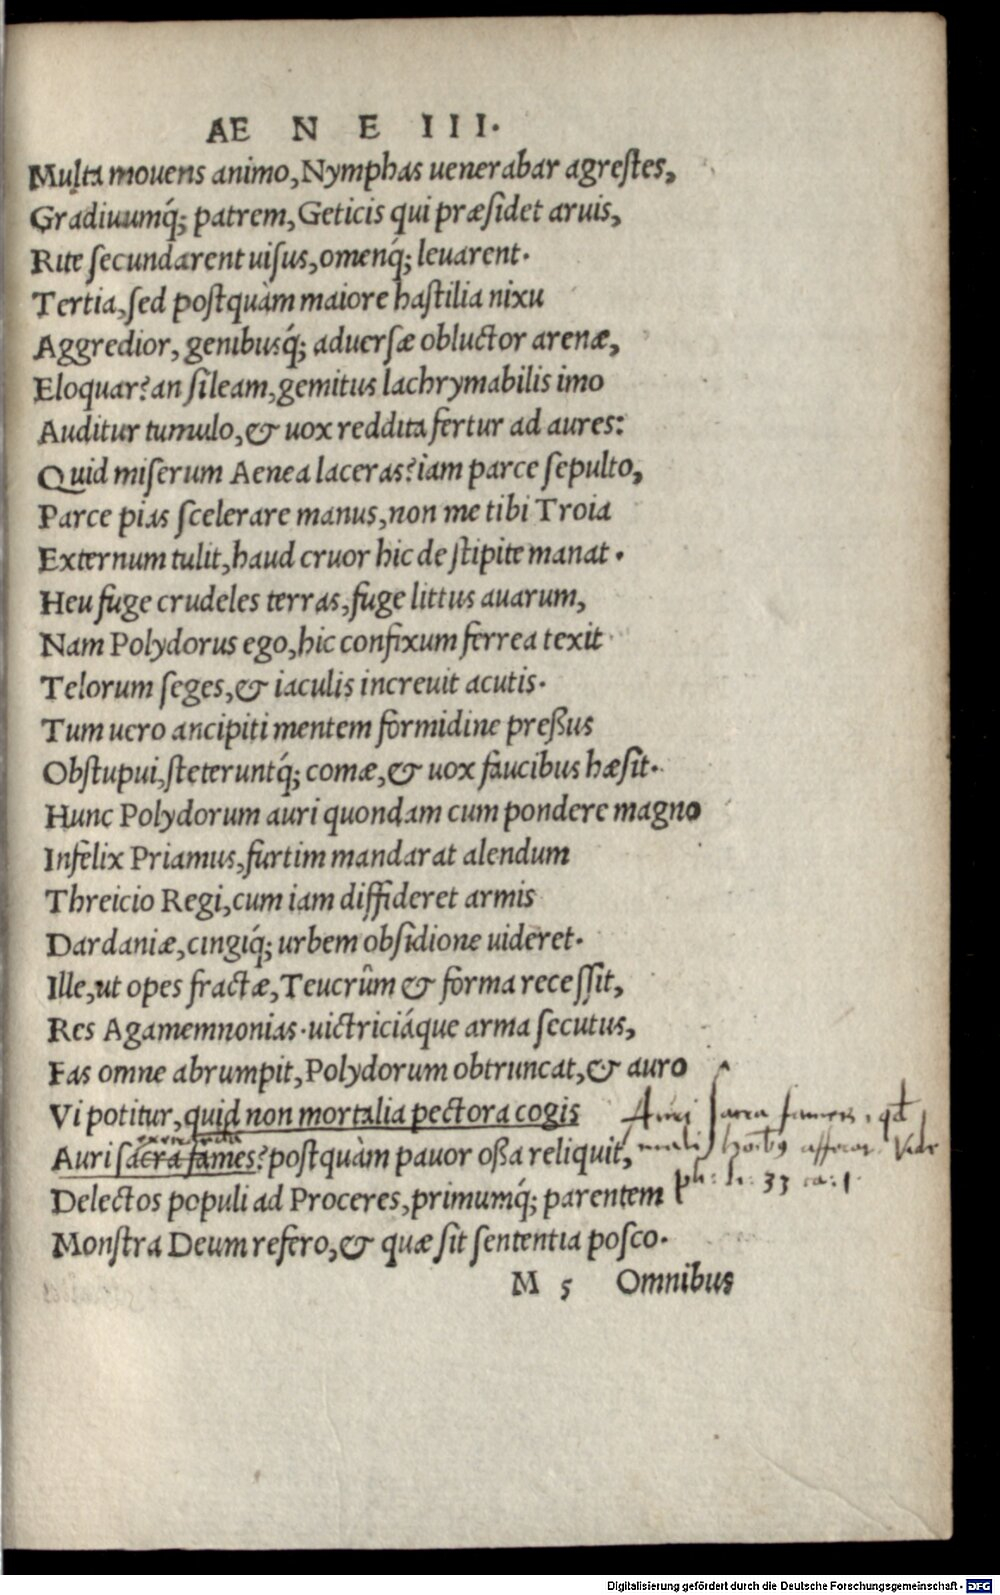 AE N E III.
Multa mouens animo, Nymphas uenerabar agrestes,
Gradiuumq́; patrem, Geticis qui præsidet aruis,
Rite secundarent uisus, omenq́; leuarent.
Tertia, sed postquàm maiore hastilia nixu
Aggredior, genibusq́; aduersæ obluctor arenæ,
Eloquar? an sileam, gemitus lachrymabilis imo
Auditur tumulo, & uox reddita fertur ad aures:
Quid miserum Aenea laceras? iam parce sepulto,
Parce pias scelerare manus, non me tibi Troia
Externum tulit, haud cruor hic de stipite manat.
Heu fuge crudeles terras, fuge littus auarum,
Nam Polydorus ego, hic confixum ferrea texit
Telorum seges, & iaculis increuit acutis.
Tum uero ancipiti mentem formidine preßus
Obstupui, steteruntq́; comæ, & uox faucibus hæsit.
Hunc Polydorum auri quondam cum pondere magno
Infelix Priamus, furtim mandarat alendum
Threicio Regi, cum iam diffideret armis
Dardaniæ, cingiq́; urbem obsidione uideret.
Ille, ut opes fractæ, Teucrûm & forma recessit,
Res Agamemnonias. uictriciáque arma secutus,
Fas omne abrumpit, Polydorum obtruncat, & auro
Vi potitur, quid non mortalia pectora cogis
Auri sacra fames? postquàm pauor oßa reliquit,
Auri sacra fames, qd
mali afferat. Vide
pli: li: 33 ca: 1.
Delectos populi ad Proceres, primumq́; parentem
Monstra Deum refero, & quæ sit sententia posco.
M 5 Omnibus
Digitalisierung gefördert durch die Deutsche Forschungsgemeinschaft - DFG